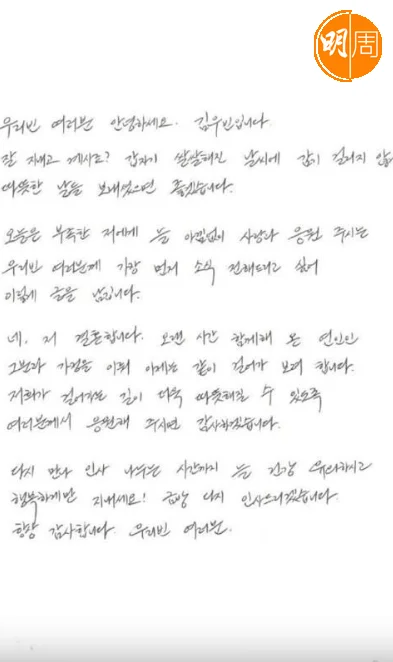 明周
우리빈 여러분 안녕하세요. 김우빈입니다.
잘 지내고 계시죠? 갑자기 쌀쌀해진 날씨에 감기 걸리지 않
따뜻한 날들 보내셨으면 좋겠습니다.
오늘은 부족한 저에게 늘 아낌없이 사랑과 응원 주시는
우리빈 여러분께 가장 먼저 소식 전해드리고 싶어
이렇게 글을 남깁니다.
네, 저 결혼합니다. 오랜 시간 함께해 온 연인인
그분과 가정을 이뤄 이제는 같이 걸어가 보려 합니다.
저희가 걸어가는 길이 더욱 따뜻해질 수 있도록
여러분께서 응원해 주시면 감사하겠습니다.
다시 만나 인사 나누는 시간까지 늘 건강 유의하시고
행복하게만 지내세요! 금방 다시 인사드리겠습니다.
항상 감사합니다. 우리빈 여러분.